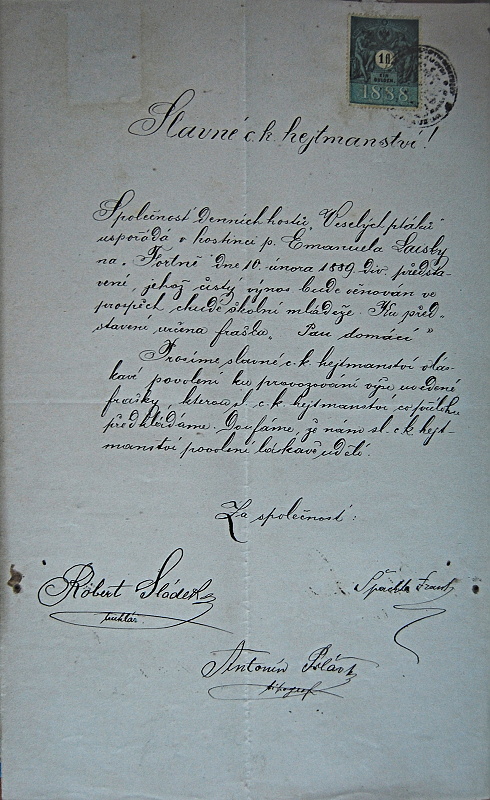 1 fl.
EIN GULDEN
1888
Slavné c. k. hejtmanství!
Společnosť denních hostů „Veselých ptáků"
uspořádá v hostinci p. Emanuela Lausky
na „Fortně" dne 10. února 1889 div. předsta-
vení, jehož čistý výnos bude věnován ve
prospěch chudé školní mládeže. Ku před-
stavení určena fraška „Pan domácí"
Prosíme slavné c. k. hejtmanství o lás-
kavé povolení ku provozování výše uvedené
frašky, kterou sl. c. k. hejtmanství co přílohu
předkládáme. Doufáme, že nám sl. c. k. hejt-
manství povolení láskavě udělí.
Za společnosť:
Róbert Sládek
Špachta Frant.
Antonín
tipograf